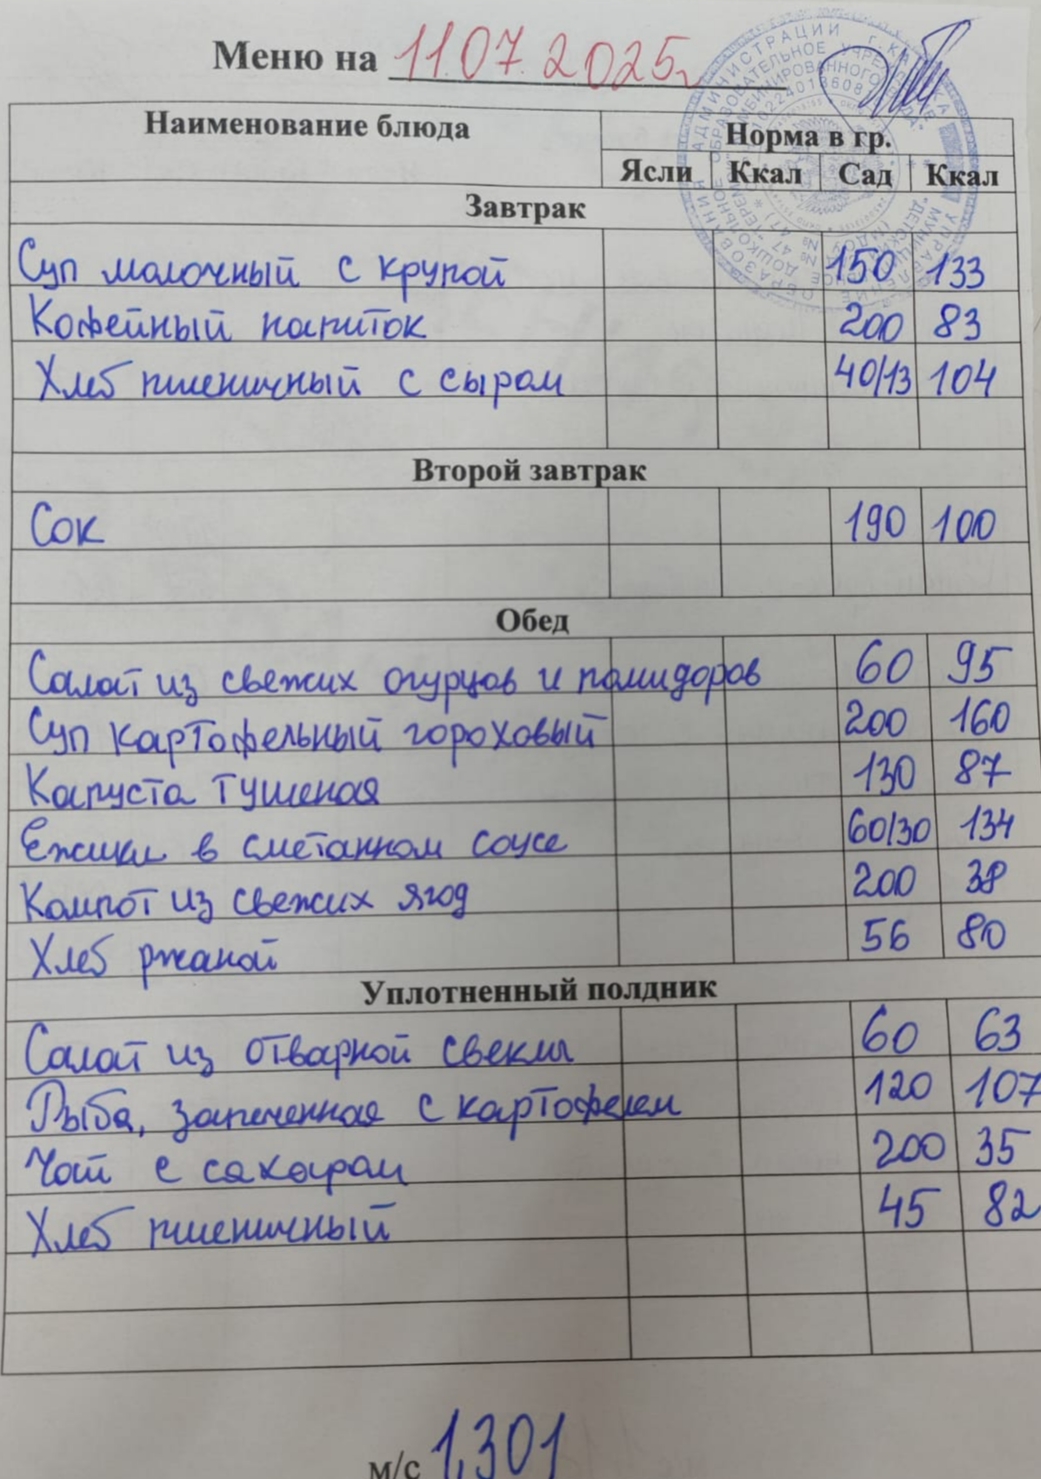 Меню на 11.07.2025г
Наименование блюда Норма в гр.
Ясли Ккал Сад Ккал
Завтрак
Суп молочный с крупой 150 133
Кофейный напиток 200 83
Хлеб пшеничный с сыром 40/13 104
Второй завтрак
Сок 190 100
Обед
Салат из свежих огурцов и помидоров 60 95
Суп картофельный гороховый 200 160
Капуста тушеная 130 87
Ежики в сметанном соусе 60/30 134
Компот из свежих ягод 200 38
Хлеб ржаной 56 80
Уплотненный полдник
Салат из отварной свеклы 60 63
Рыба, запеченная с картофелем 120 107
Чай с сахаром 200 35
Хлеб пшеничный 45 82
м/с 1,301